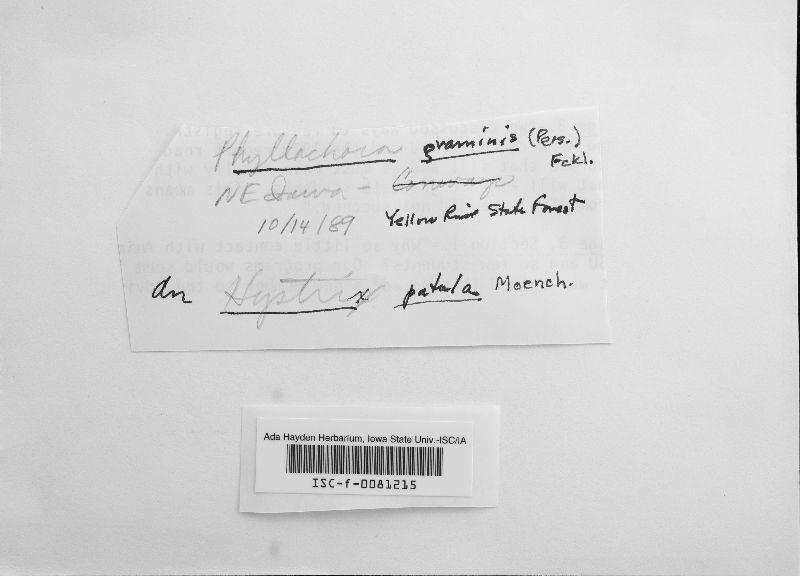 Phyllachora graminis (Pers.) Fckl.
NE Iowa -
10/14/89 Yellow River State Forest
On Hystrix patula Moench.
Ada Hayden Herbarium, Iowa State Univ.-ISC/IA
ISC-f-0081215